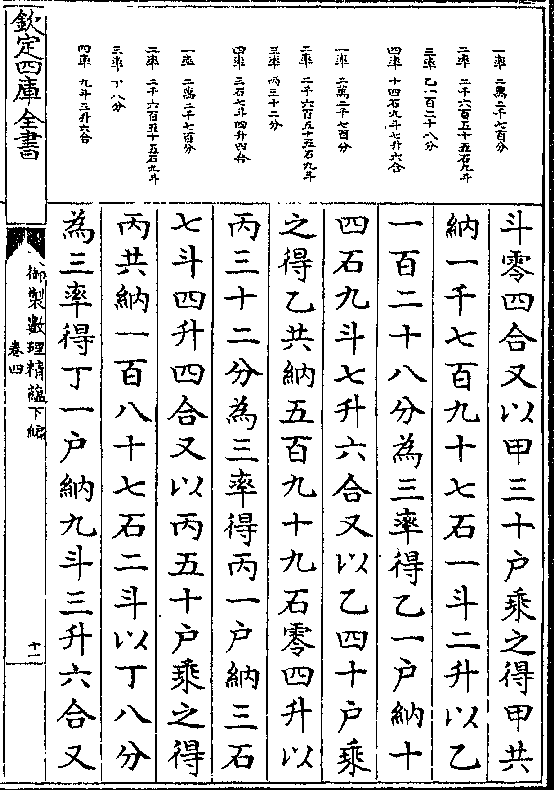 一率 二萬二千七百分
二率 二千六百五十五石九斗
三率 乙一百二十八分
四率 十四石九斗七升六合
一率 二萬二千七百分
二率 二千六百五十五石九斗
三率 丙三十二分
四率 三石七斗四升四合
一率 二萬二千七百分
二率 二千六百五十五石九斗
三率 丁八分
四率 九斗三升六合
斗零四合又以甲三十户乘之得甲共
納一千七百九十七石一斗二升以乙
一百二十八分為三率得乙一户納十
四石九斗七升六合又以乙四十户乘
之得乙共納五百九十九石零四升以
丙三十二分為三率得丙一户納三石
七斗四升四合又以丙五十户乘之得
丙共納一百八十七石二斗以丁八分
為三率得丁一户納九斗三升六合又
欽定四庫全書
御製數理精蘊下編
卷四
十一